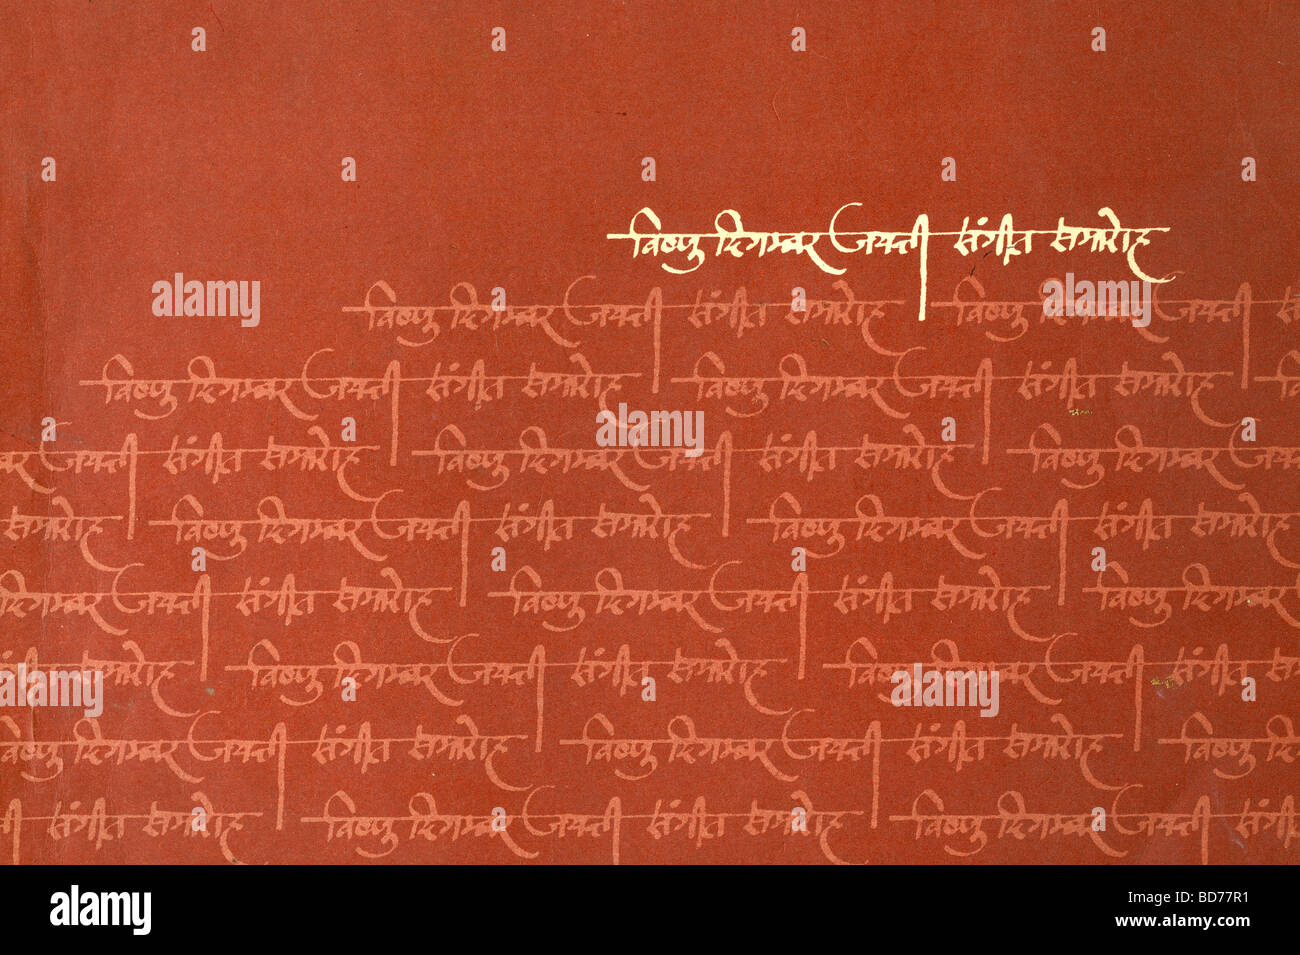 विष्णु दिगम्बर जयन्ती संगीत समारोह
विष्णु दिगम्बर जयन्ती संगीत समारोह विष्णु दिगम्बर जयन्ती
विष्णु दिगम्बर जयन्ती संगीत समारोह विष्णु दिगम्बर जयन्ती संगीत समारोह
जयन्ती संगीत समारोह विष्णु दिगम्बर जयन्ती संगीत समारोह विष्णु दिगम्बर
समारोह विष्णु दिगम्बर जयन्ती संगीत समारोह विष्णु दिगम्बर जयन्ती संगीत समारोह
दिगम्बर जयन्ती संगीत समारोह विष्णु दिगम्बर जयन्ती संगीत समारोह विष्णु दिगम्बर
संगीत समारोह विष्णु दिगम्बर जयन्ती संगीत समारोह विष्णु दिगम्बर जयन्ती संगीत
विष्णु दिगम्बर जयन्ती संगीत समारोह विष्णु दिगम्बर जयन्ती संगीत समारोह विष्णु
संगीत समारोह विष्णु दिगम्बर जयन्ती संगीत समारोह विष्णु दिगम्बर जयन्ती
alamy
Image ID: BD77R1
www.alamy.com